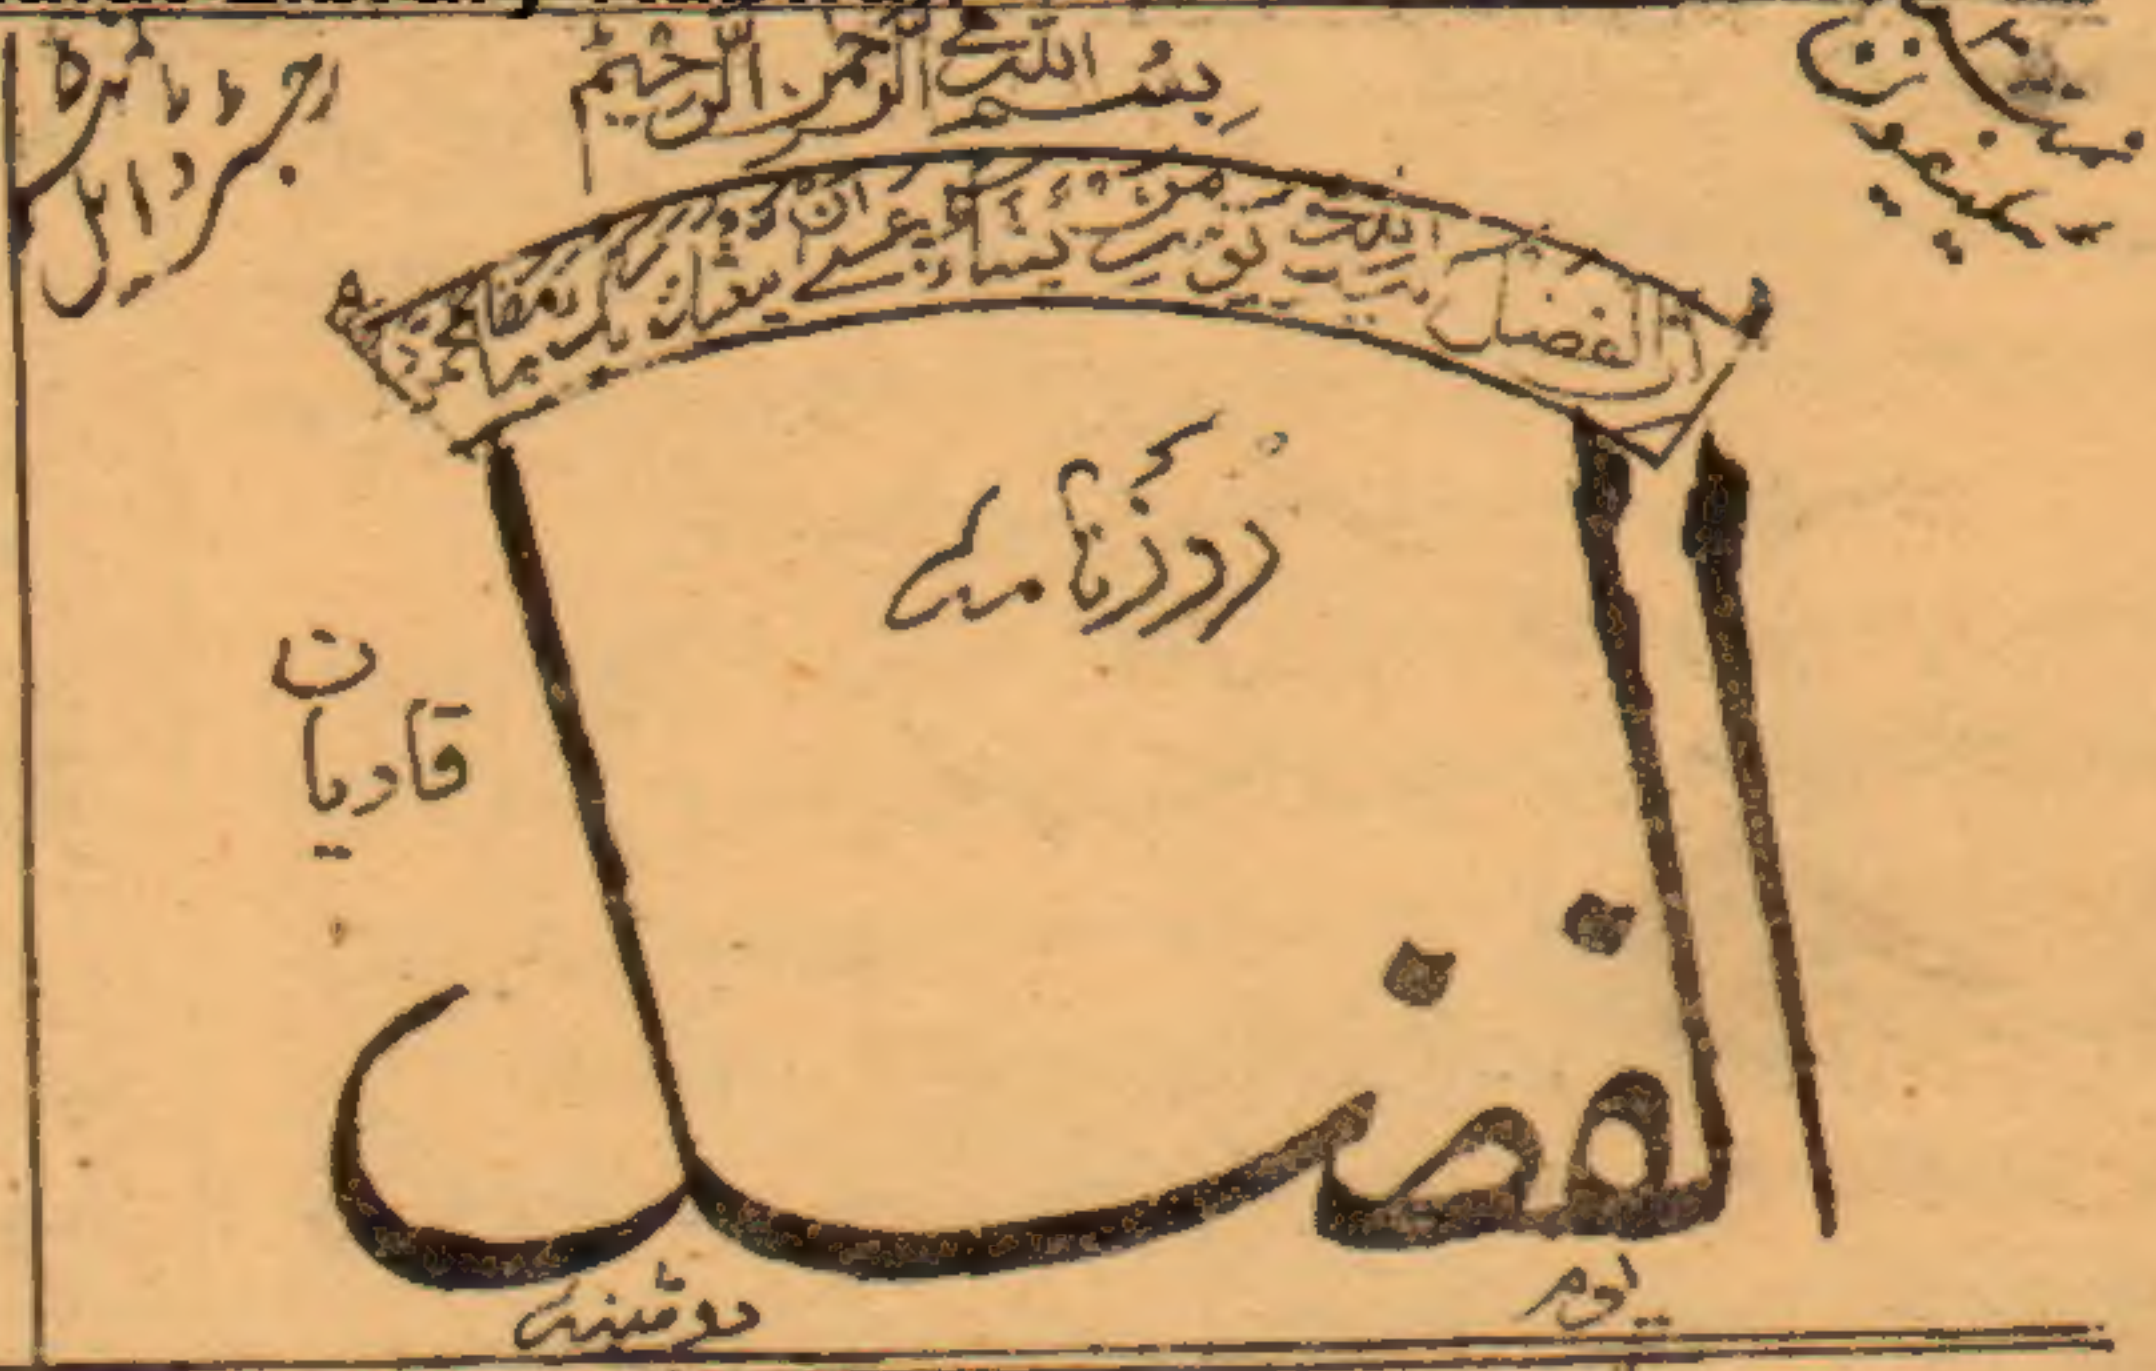 بِسْمِ اللّٰہِ الرَّحْمٰنِ الرَّحِیْمِ
رجسٹرڈ ایل نمبر
اِنَّ الْفَضْلَ بِیَدِ اللّٰہِ یُؤْتِیْہِ مَنْ یَّشَآءُ عَسٰی اَنْ یَّبْعَثَکَ رَبُّکَ مَقَامًا مَّحْمُوْدًا
روزنامہ
الفضل
قادیان
یوم دوشنبہ